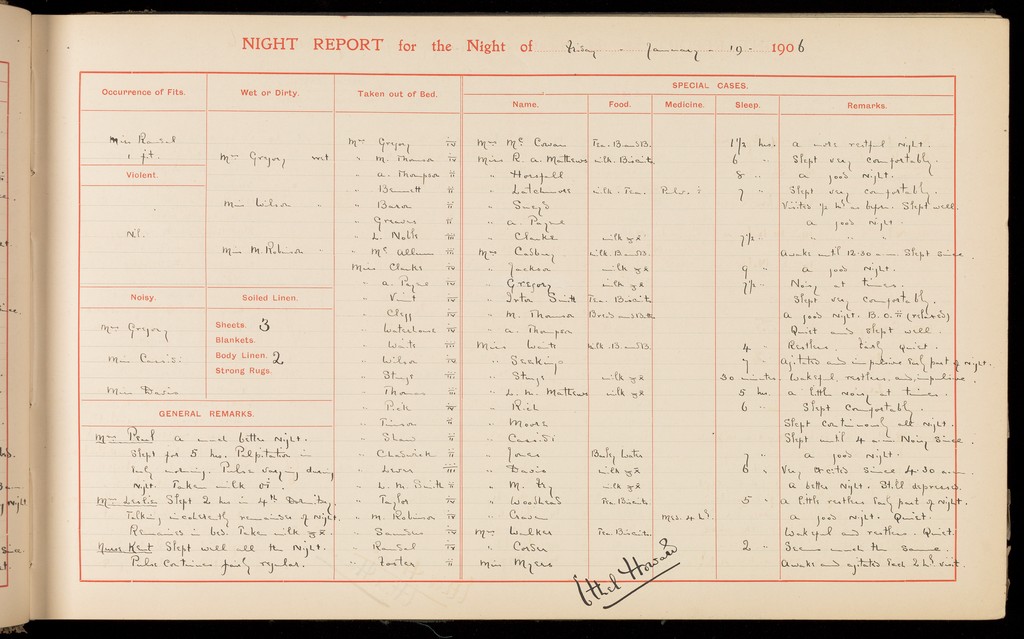 NIGHT REPORT for the Night of Friday - January - 19 - 1906
Occurrence of Fits.
Miss Ransal
1 fit.
Violent.
Nil.
Noisy.
Mrs Gregory
Miss Cassidi
Miss Davis
Wet or Dirty.
Mrs Gregory wet
Miss Wilson "
Miss M. Robinson "
Soiled Linen.
Sheets. 3
Blankets.
Body Linen. 2
Strong Rugs.
GENERAL REMARKS.
Mrs Paul a much better night.
Slept for 5 hrs. Palpitation in
early morning. Pulse varying during
night. Taken milk
Mrs Leslie Slept 2 hrs in 4th Dormitory
Talking incoherently remainder of night.
Remained in bed. Taken milk
Nurse Kent Slept well all the night.
Pulse continues fairly regular.
Taken out of Bed.
Mrs Gregory iv
" M. Thomson iv
" A. Thompson ii
" Bennett ii
" Baron ii
" Greaves ii
" L. Noble iii
" Mc Allum iii
Miss Clarke iv
" A. Payne iv
" Vint iv
" Clegg iv
" Waterhouse iv
" Waite iii
" Wilson iv
" Stuys iii
" Thomas iii
" Pick iv
" Pinson iv
" Shaw ii
" Chadwick ii
" Lewer iii
" L. M. Smith ii
" Taylor iv
" M. Robinson iv
" Saunders iv
" Ransal iv
" Foster ii
SPECIAL CASES.
Name. Food. Medicine. Sleep. Remarks.
Mrs Mc Cowan Tea. B. and B. 1 1/2 hrs. a more restful night.
Miss R. A. Mathews milk. Biscuits 6 " Slept very comfortably.
" Horsfall 8 " a good night.
" Latchmore milk. Tea. 7 " Slept very comfortably.
" Sways Visited as before. Slept well.
" A. Payne a good night.
" Clarke milk 7 1/2 " " " "
Mrs Cadbury milk. B. and B. Awake until 12.30 a.m. Slept since.
" Jackson milk 9 " a good night.
" Gregory milk 7 1/2 " Noisy at times.
" Smith Tea. Biscuits Slept very comfortably.
" M. Thomson Bread and Butter a good night. B.O. ii (relaxed)
" A. Thompson Quiet and slept well.
Miss Waite milk. B. and B. 4 " Restless. Fairly Quiet.
" Seeking 7 " agitated and impulsive early part of night.
" Stuys milk 30 minutes Wakeful, restless, and impulsive.
" L. M. Mathews milk 5 hrs. a little noisy at times.
" Rich 6 " Slept comfortably.
" Moore Slept continuously all night.
" Cassidi Slept until 4 a.m. Noisy since.
" Jones Barley Water 7 " a good night.
" Davis milk 6 " Very excited since 4.30 a.m.
" M. Fry milk a better night. Still depressed.
" Woodhead Tea Biscuits 5 " a little restless early part of night.
" Craven Med. a good night. Quiet.
Mrs Walker Tea Biscuits Wakeful and restless. Quiet.
" Corder 2 " Seems much the same.
Miss Myers Awake and agitated each 2 hr visit.
Ethel Howard